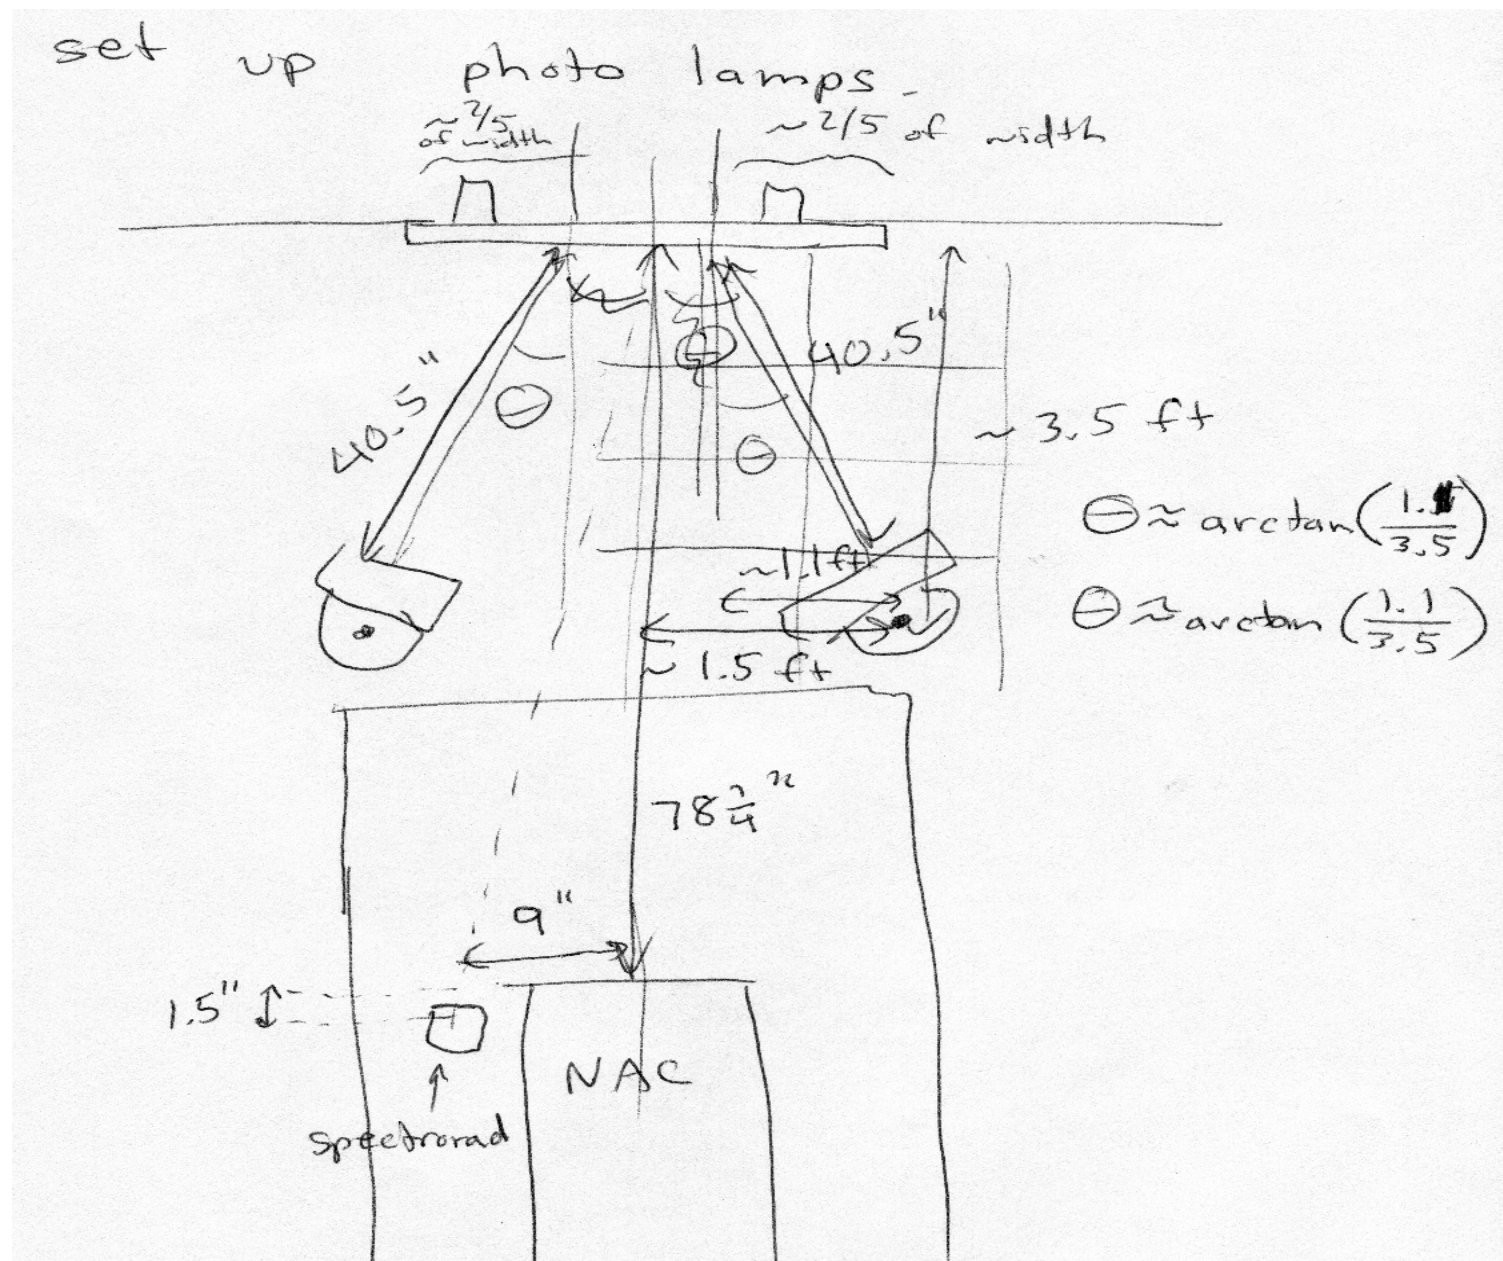 set up photo lamps
~2/5
of width
~2/5 of width
40.5"
40.5"
θ
θ
θ
~ 3.5 ft
θ ≈ arctan(1.1/3.5)
~1.1ft
~ 1.5 ft
78 3/4"
9"
1.5"
NAC
spectrorad